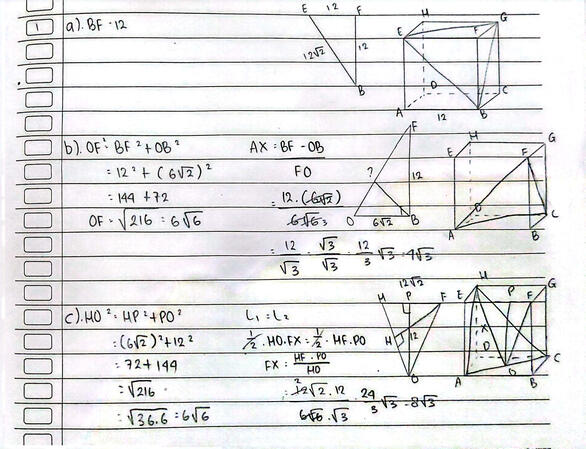 1
a). BF = 12
E 12 F
12√2
12
B
H G
E F
D C
A B
12
b). OF² = BF² + OB²
= 12² + (6√2)²
= 144 + 72
OF = √216 = 6√6
AX = BF - OB
FO
= 12 . (6√2)
6√6 3
= 12/√3 . √3/√3 = 12/3 √3 = 4√3
F
?
12
O 6√2 B
H G
E F
O C
A B
c). HO² = HP² + PO²
= (6√2)² + 12²
= 72 + 144
= √216
= √36.6 = 6√6
L₁ = L₂
1/2 . HO . FX = 1/2 . HF . PO
FX = HF . PO
HO
= 12√2 . 12
6√6 . √3
= 24/3 √3 = 8√3
12√2
H P F
H 12
O
H G
E P F
X
D C
A O B